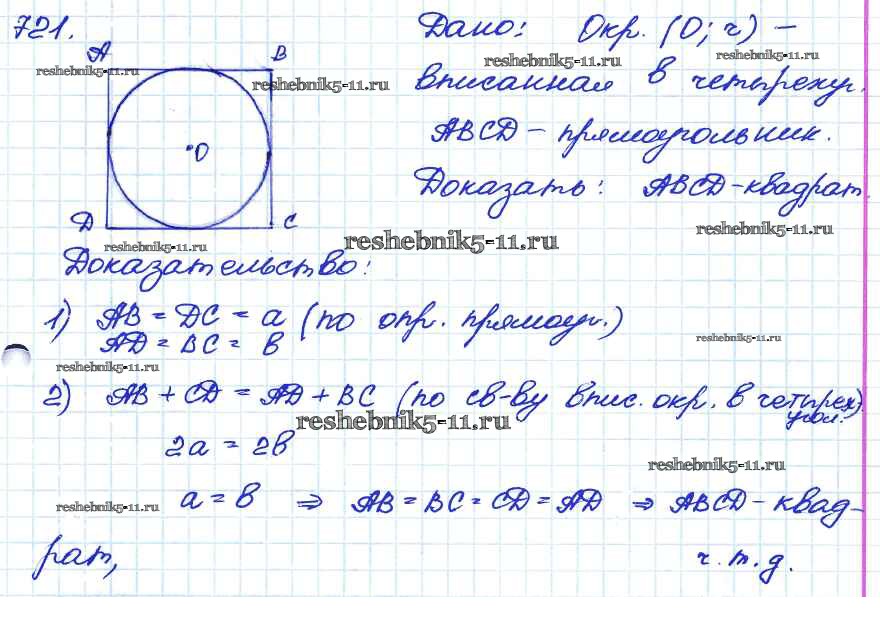 721.
Дано: Окр. (O; r) –
A B
reshebnik5-11.ru
reshebnik5-11.ru
reshebnik5-11.ru
reshebnik5-11.ru
вписанная в четыреху.
O
ABCD – прямоугольник.
Доказать: ABCD – квадрат.
D C
reshebnik5-11.ru
reshebnik5-11.ru
reshebnik5-11.ru
Доказательство:
1) AB = DC = a (по опр. прямоуг.)
AD = BC = b
reshebnik5-11.ru
reshebnik5-11.ru
2) AB + CD = AD + BC (по св-ву впис. окр. в четырех)
угол.
reshebnik5-11.ru
2a = 2b
reshebnik5-11.ru
reshebnik5-11.ru
a = b ⇒ AB = BC = CD = AD ⇒ ABCD – квад-
рат,
ч.т.д.